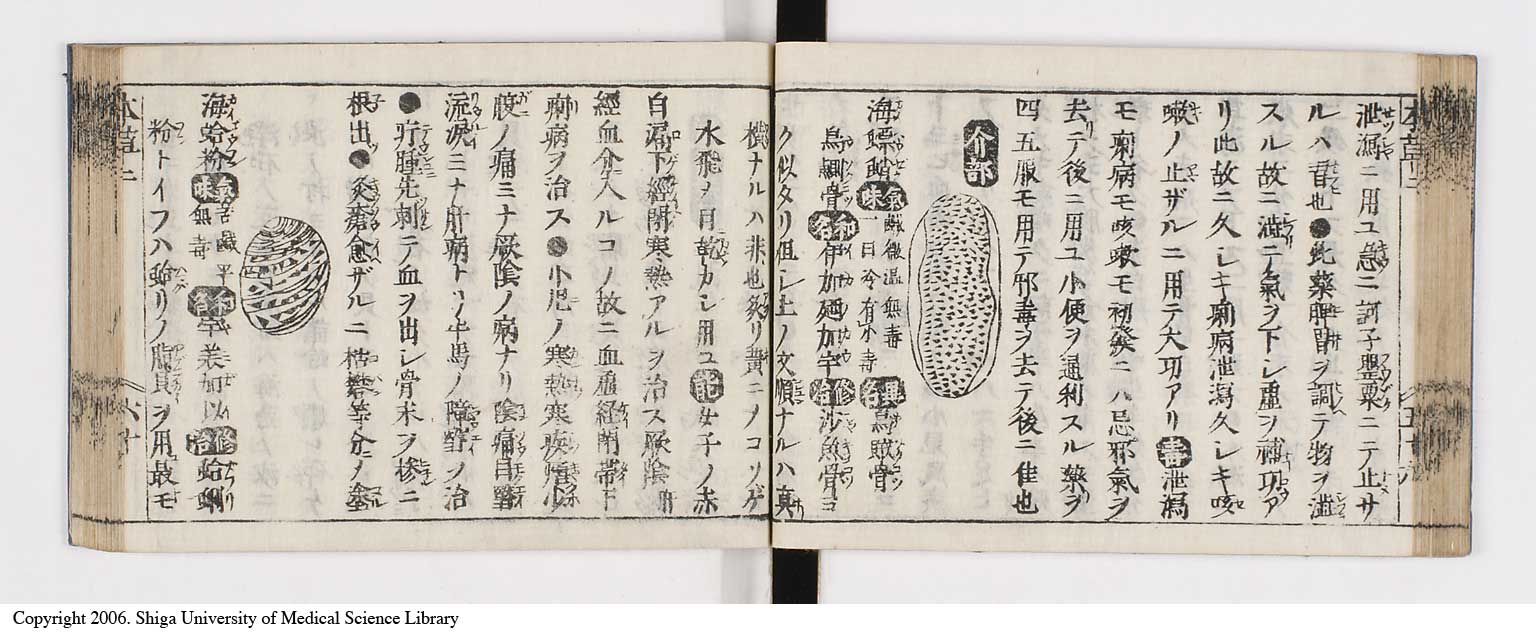 泄瀉ニ用ユ急ニ訶子罌粟ニテ止サ
ルハ書也●此藥脾胃ヲ調テ物ヲ澁
スル故ニ澁テ氣ヲ下シ虚ヲ補功ア
リ此故ニ久シキ痢病泄瀉久シキ咳
嗽ノ止ザルニ用テ大功アリ 毒 泄瀉
モ痢病モ咳嗽モ初發ニハ忌邪氣ヲ
去テ後ニ用ユ小便ヲ通利スル藥ヲ
四五服モ用テ邪毒ヲ去テ後ニ佳也
介部
海鰾鮹 氣味 鹹微温無毒
一曰冷有小毒 異名 烏賊骨
烏鰂骨 和名 伊加廼加宇 修治 沙魚骨コ
ク似タリ但シ上ノ文順ナルハ真
横ナルハ非也炙リ黄ニメコソゲ
水飛ヲ日乾カシ用ユ 能 女子ノ赤
白漏下經閉寒熱アルヲ治ス厥陰肝
經血分ヘ入ルコノ故ニ血虚經閉帯下
痢病ヲ治ス●小児ノ寒熱寒疾
腹ノ痛ミナ厥陰ノ病ナリ陰痛目翳
流涙ミナ肝病トリ牛馬ノ障翳ヲ治
●疔腫先刺テ血ヲ出シ骨末ヲ摻ニ
根出●灸瘡愈ザルニ 等分ノ塗
海蛤粉 氣味 苦鹹平
無毒 和名 宇 加以 修治 蛤蜊
粉トイフハ蛤リノ ヲ用最モ
本草二
六十
Copyright 2006. Shiga University of Medical Science Library